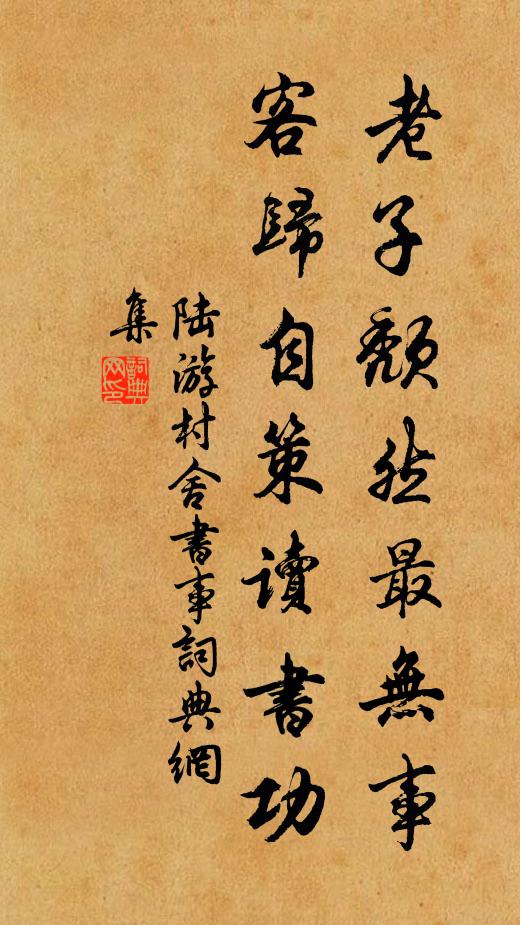 老子頹然最無事
客歸自策讀書功
陆游村舍書事詞典網
集
詞典网印